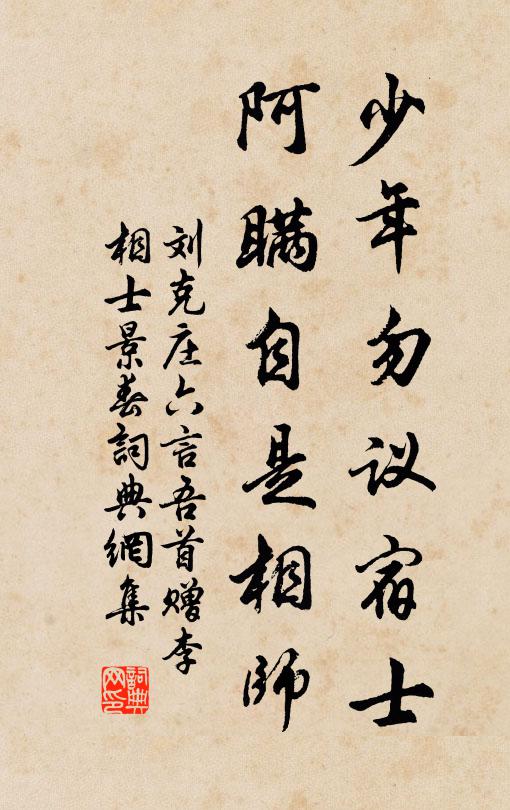 少年勿议宿士
阿瞒自是相师
刘克庄六言吾首赠李
相士景春詞典網集
詞典
网印